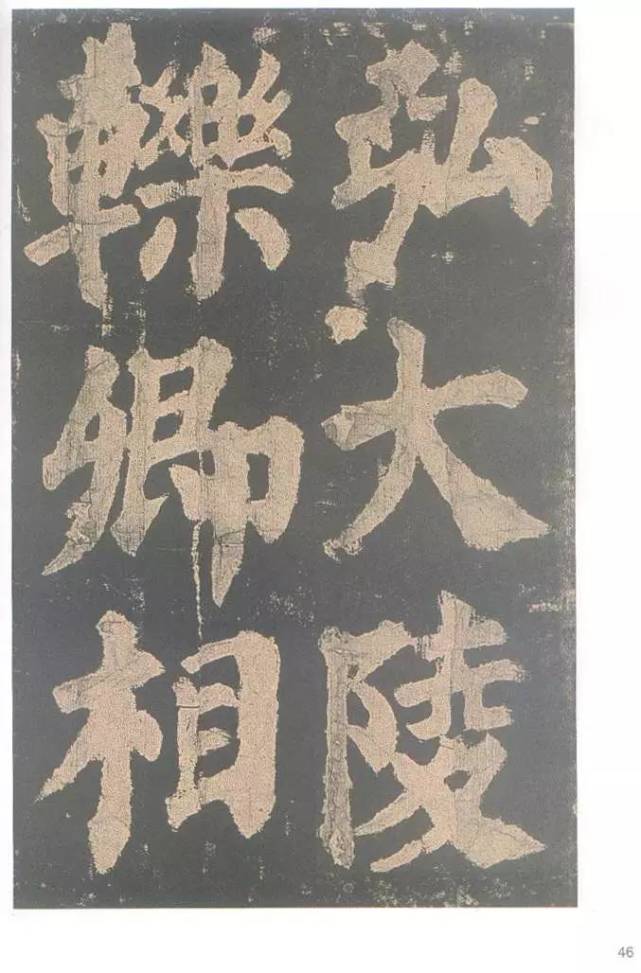 弘大陵
轢卿相
46